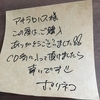 アキラセンス様
この度はご購入
ありがとうございました!!
CD気に入って頂けましたら
幸いです